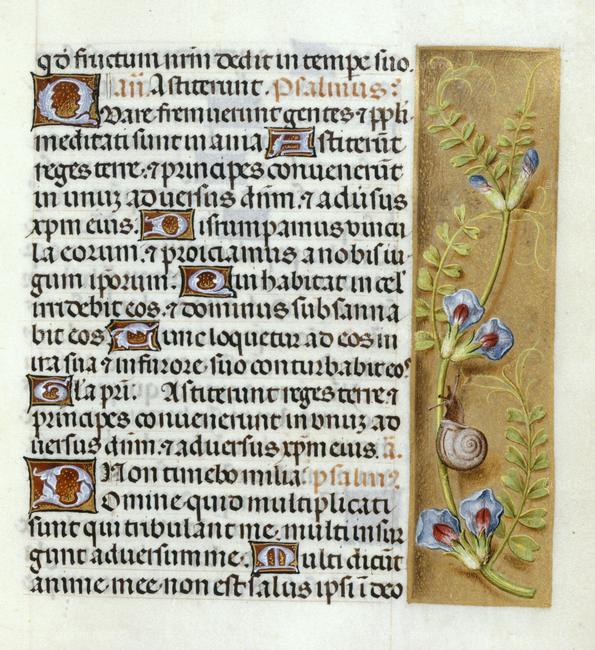 qd fructum nrm dedit in tempe suo.
añ Astiterunt. Psalmus:
Quare fremuerunt gentes ⁊ ppli
meditati sunt inania Astiterūt
reges terre. ⁊ principes conuenerūt
in unuz aduersus dnm. ⁊ adusus
xpm eius. Disrumpamus vincu
la eorum. ⁊ proiciamus a nobis iu
gum iporum. Qui habitat in cel
irridebit eos. ⁊ dominus subsanna
bit eos. Tunc loquetur ad eos in
ira sua ⁊ in furore suo conturbabit eos
Gla pri. Astiterunt reges terre ⁊
principes conuenerunt in vnuz ad
uersus dnm. ⁊ aduersus xpm eius. a.
Non timebo milia psalm9
Domine quid multiplicati
sunt qui tribulant me. multi insur
gunt aduersum me. Multi dicūt
anime mee non est salus ipsi ī deo